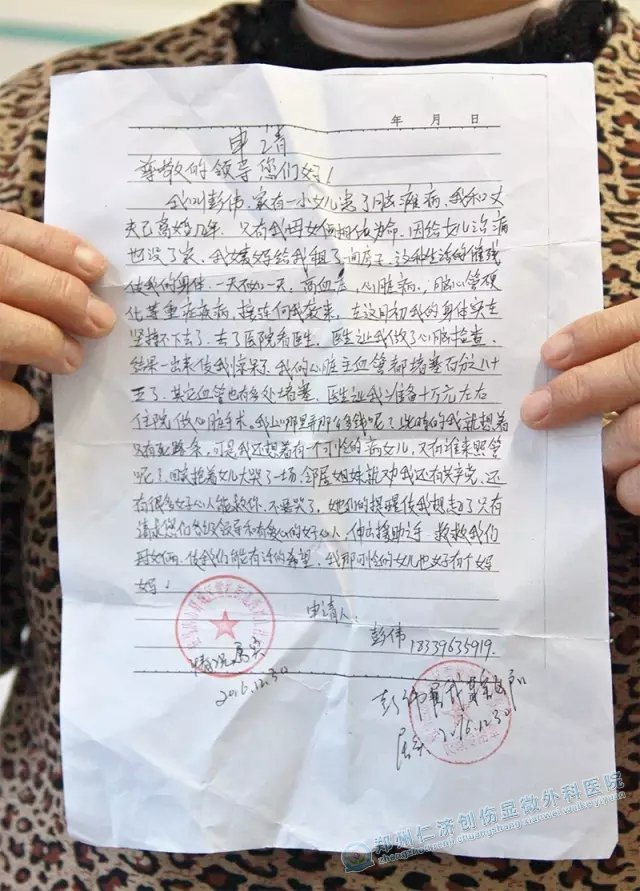 年 月 日
申请
尊敬的领导您们好！
我叫彭伟，家有一小女儿患了脑瘫病，我和丈
夫已离婚几年，只有我母女俩相依为命，因给女儿治病
也没了家，我娘给我租了一间房子，这种生活的催残
使我的身体一天不如一天，高血压，心脏病，脑心管硬
化等重症疾病，接连向我袭来，在这月初我的身体实在
坚持不下去了，去了医院看医生，医生让我做了心脏检查，
结果一出来使我惊呆了，我的心脏主血管都堵塞百分八十
五了，其它血管也有多处堵塞，医生让我准备十万元左右
住院做心脏手术，我上哪里弄那么多钱呢？此时的我就想着
只有死路一条，可是我还想着有一个可怜的病女儿，又有谁来照管
呢？回来抱着女儿大哭了一场，邻居姐妹就劝我还有共产党，还
有很多好心人能救你，不要哭了，她们的提醒使我想起了只有
请求您们各级领导和有爱心的好心人，伸出援助之手，救救我们
母女俩，使我们能有活的希望，我那可怜的女儿也好有个妈
妈！
申请人
彭伟 18339635919.
情况属实
2016.12.30
彭伟
2016.12.30
属实
郑州仁济创伤显微外科医院
zhengzhourenji chuangshang xianwei waike yiyuan